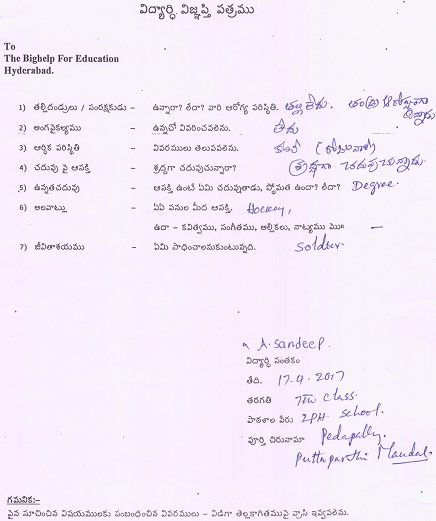 విద్యార్ధి విజ్ఞప్తి పత్రము
To
The Bighelp For Education
Hyderabad.
1) తల్లిదండ్రులు / సంరక్షకుడు – ఉన్నారా? లేదా? వారి ఆరోగ్య పరిస్థితి. తల్లి లేదు. తండ్రి ఆరోగ్యంగా ఉన్నాడు
2) అంగవైకల్యము – ఉన్నచో వివరించవలెను. లేదు
3) ఆర్థిక పరిస్థితి – వివరములు తెలుపవలెను. కూలి
4) చదువు పై ఆసక్తి – శ్రద్ధగా చదువుచున్నారా? శ్రద్ధగా చదువుచున్నాడు.
5) ఉన్నతచదువు – ఆసక్తి ఉంటే ఏమి చదువుతాడు, స్ధోమత ఉందా? లేదా? Degree.
6) అలవాట్లు – ఏఏ పనుల మీద ఆసక్తి. Hockey,
ఉదా – కవిత్వము, సంగీతము, అల్లికలు, నాట్యము మొ॥ —
7) జీవితాశయము – ఏమి సాధించాలనుకుంటున్నది. Soldier.
A. Sandeep.
విద్యార్ధి సంతకం
తేది. 17-4-2017
తరగతి 7TH class.
పాఠశాల పేరు ZPH School.
పూర్తి చిరునామా Pedapally.
Puttaparthi Mandal.
గమనిక:-
పైన సూచించిన విషయములకు సంబంధించిన వివరములు – విడిగా తెల్లకాగితముపై వ్రాసి ఇవ్వవలెను.